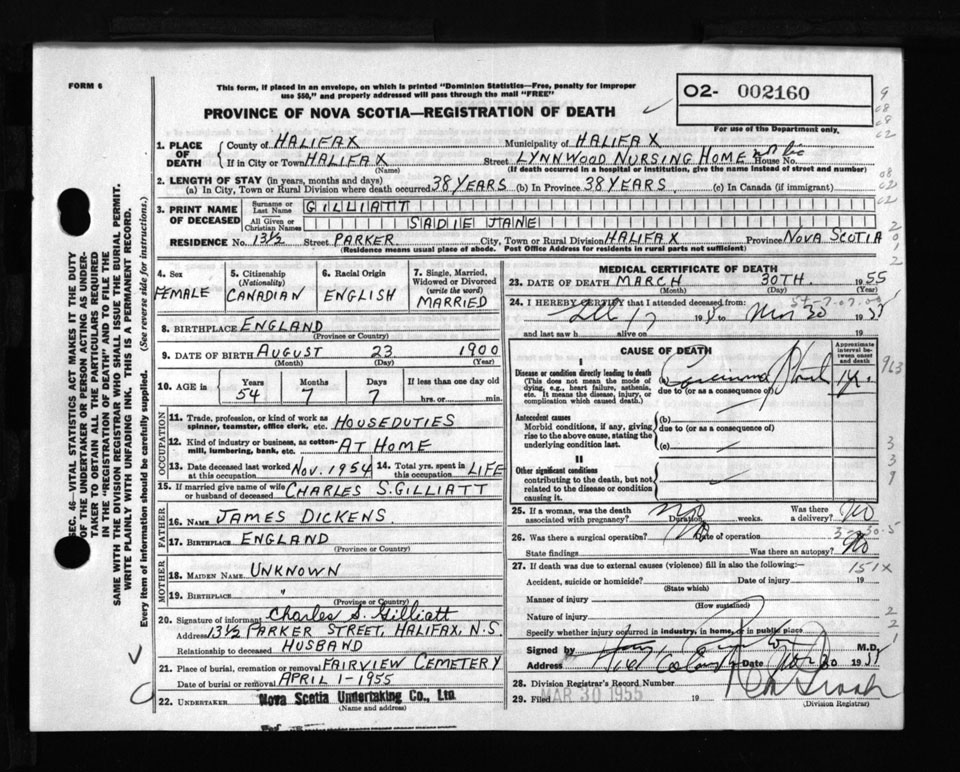 FORM 6
This form, if placed in an envelope, on which is printed "Dominion Statistics—Free, penalty for improper
use $50," and properly addressed will pass through the mail "FREE"
PROVINCE OF NOVA SCOTIA—REGISTRATION OF DEATH
02- 002160
For use of the Department only.
SEC. 46—VITAL STATISTICS ACT MAKES IT THE DUTY
OF THE UNDERTAKER OR PERSON ACTING AS UNDER-
TAKER TO OBTAIN ALL THE PARTICULARS REQUIRED
IN THE "REGISTRATION OF DEATH" AND TO FILE THE
SAME WITH THE DIVISION REGISTRAR WHO SHALL ISSUE THE BURIAL PERMIT.
WRITE PLAINLY WITH UNFADING INK. THIS IS A PERMANENT RECORD.
Every item of information should be carefully supplied. (See reverse side for instructions.)
1. PLACE OF DEATH County of HALIFAX Municipality of HALIFAX
If in City or Town HALIFAX Street LYNNWOOD NURSING HOME House No.
(Name) (If death occurred in a hospital or institution, give the name instead of street and number)
2. LENGTH OF STAY (in years, months and days)
(a) In City, Town or Rural Division where death occurred 38 YEARS (b) In Province 38 YEARS. (c) In Canada (if immigrant)
3. PRINT NAME OF DECEASED Surname or Last Name GILLIATT
All Given or Christian Names SADIE JANE
RESIDENCE No. 13½ Street PARKER City, Town or Rural Division HALIFAX Province NOVA SCOTIA
(Residence means usual place of abode. Post Office Address for residents in rural parts not sufficient)
4. Sex FEMALE
5. Citizenship (Nationality) CANADIAN
6. Racial Origin ENGLISH
7. Single, Married, Widowed or Divorced (write the word) MARRIED
8. BIRTHPLACE ENGLAND
(Province or Country)
9. DATE OF BIRTH AUGUST 23 1900
(Month) (Day) (Year)
10. AGE in Years 54 Months 7 Days 7 If less than one day old hrs. or min.
OCCUPATION
11. Trade, profession, or kind of work as spinner, teamster, office clerk, etc. HOUSEDUTIES
12. Kind of industry or business, as cotton-mill, lumbering, bank, etc. AT HOME
13. Date deceased last worked at this occupation NOV. 1954 14. Total yrs. spent in this occupation LIFE
15. If married give name of wife or husband of deceased CHARLES S. GILLIATT
FATHER
16. NAME JAMES DICKENS.
17. BIRTHPLACE ENGLAND
(Province or Country)
MOTHER
18. MAIDEN NAME UNKNOWN
19. BIRTHPLACE "
(Province or Country)
20. Signature of informant Charles S. Gilliatt
Address 13½ PARKER STREET, HALIFAX, N.S.
Relationship to deceased HUSBAND
21. Place of burial, cremation or removal FAIRVIEW CEMETERY
Date of burial or removal APRIL 1-1955
22. UNDERTAKER Nova Scotia Undertaking Co., Ltd.
(Name and address)
MEDICAL CERTIFICATE OF DEATH
23. DATE OF DEATH MARCH 30TH. 1955
(Month) (Day) (Year)
24. I HEREBY CERTIFY that I attended deceased from:
and last saw h alive on 19
CAUSE OF DEATH
Approximate interval between onset and death
I
Disease or condition directly leading to death
(This does not mean the mode of dying, e.g., heart failure, asthenia, etc. It means the disease, injury, or complication which caused death.)
(a)
due to (or as a consequence of)
Antecedent causes
Morbid conditions, if any, giving rise to the above cause, stating the underlying condition last.
(b)
due to (or as a consequence of)
(c)
II
Other significant conditions
contributing to the death, but not related to the disease or condition causing it.
25. If a woman, was the death associated with pregnancy? No Duration weeks. Was there a delivery? No
26. Was there a surgical operation? Date of operation
State findings Was there an autopsy? No
151X
27. If death was due to external causes (violence) fill in also the following:—
Accident, suicide or homicide? Date of injury 19
(State which)
Manner of injury
(How sustained)
Nature of injury
Specify whether injury occurred in industry, in home, or in public place
Signed by M.D.
Address Date 19
28. Division Registrar's Record Number
29. Filed MAR 30 1955 19
(Division Registrar)